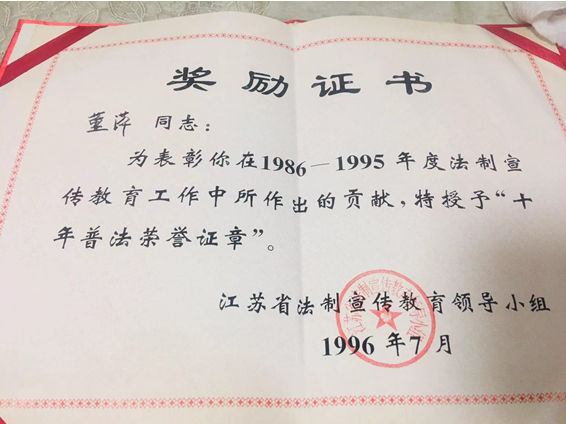 奖励证书
董萍 同志：
为表彰你在1986—1995年度法制宣
传教育工作中所作出的贡献，特授予“十
年普法荣誉证章”。
江苏省法制宣传教育领导小组
1996年7月